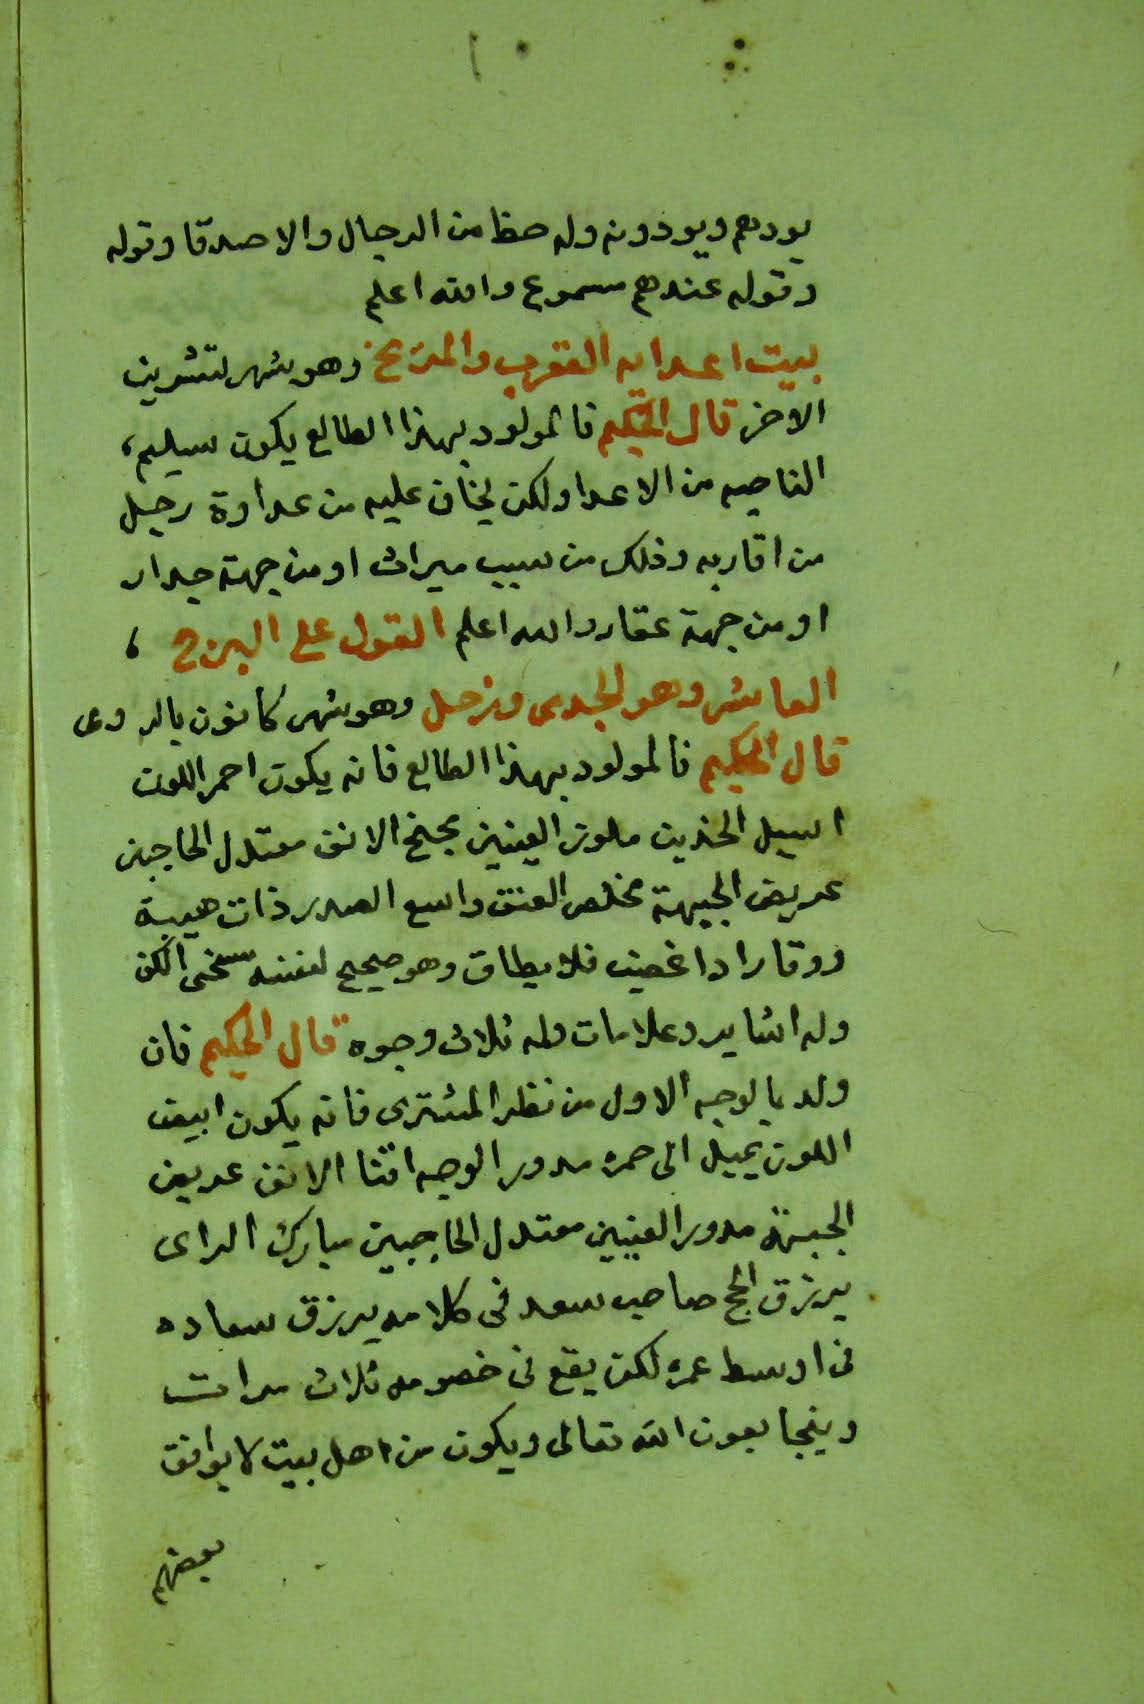 يودهم ويودونه وله حظا من الرجال والاصدقا وقوله
وقوله عندهم مسموع والله اعلم
بيت اعدايه العقرب والمريخ وهو شهر لتشرين
الاخر قال الحكيم فالمولود بهذا الطالع يكون سليم،
الناصيه من الاعدا ولكن يخاف عليه من عداوة رجل
من اقاربه وذلك من سبب ميراث او من جهة جدار
او من جهة عقار والله اعلم القول على البرج ،
العاشر وهو الجدى وزحل وهو شهر كانون بالروى
قال الحكيم فالمولود بهذا الطالع فانه يكون احمر اللون
اسيل الخدين ملوز العينين مجنح الانف معتدل الحاجبين
عريض الجبهة مخلص العنق واسع الصدر ذات هيبة
ووقار اذا غضب فلا يطاق وهو صحيح لنفسه سخى الكف
وله اشاير وعلامات وله ثلاث وجوه قال الحكيم فان
ولد بالوجه الاول من نظر المشترى فانه يكون ابيض
اللون يميل الى حمره مدور الوجه اقنا الانف عريض
الجبهة مدور العينين معتدل الحاجبين مبارك الراى
يرزق الحج صاحب سعد فى كلامه يرزق سعاده
فى اوسط عمره لكن يقع فى خصومه ثلاث مرات
وينجا بعون الله تعالى ويكون من اهل بيت لا يوافق
بعضهم